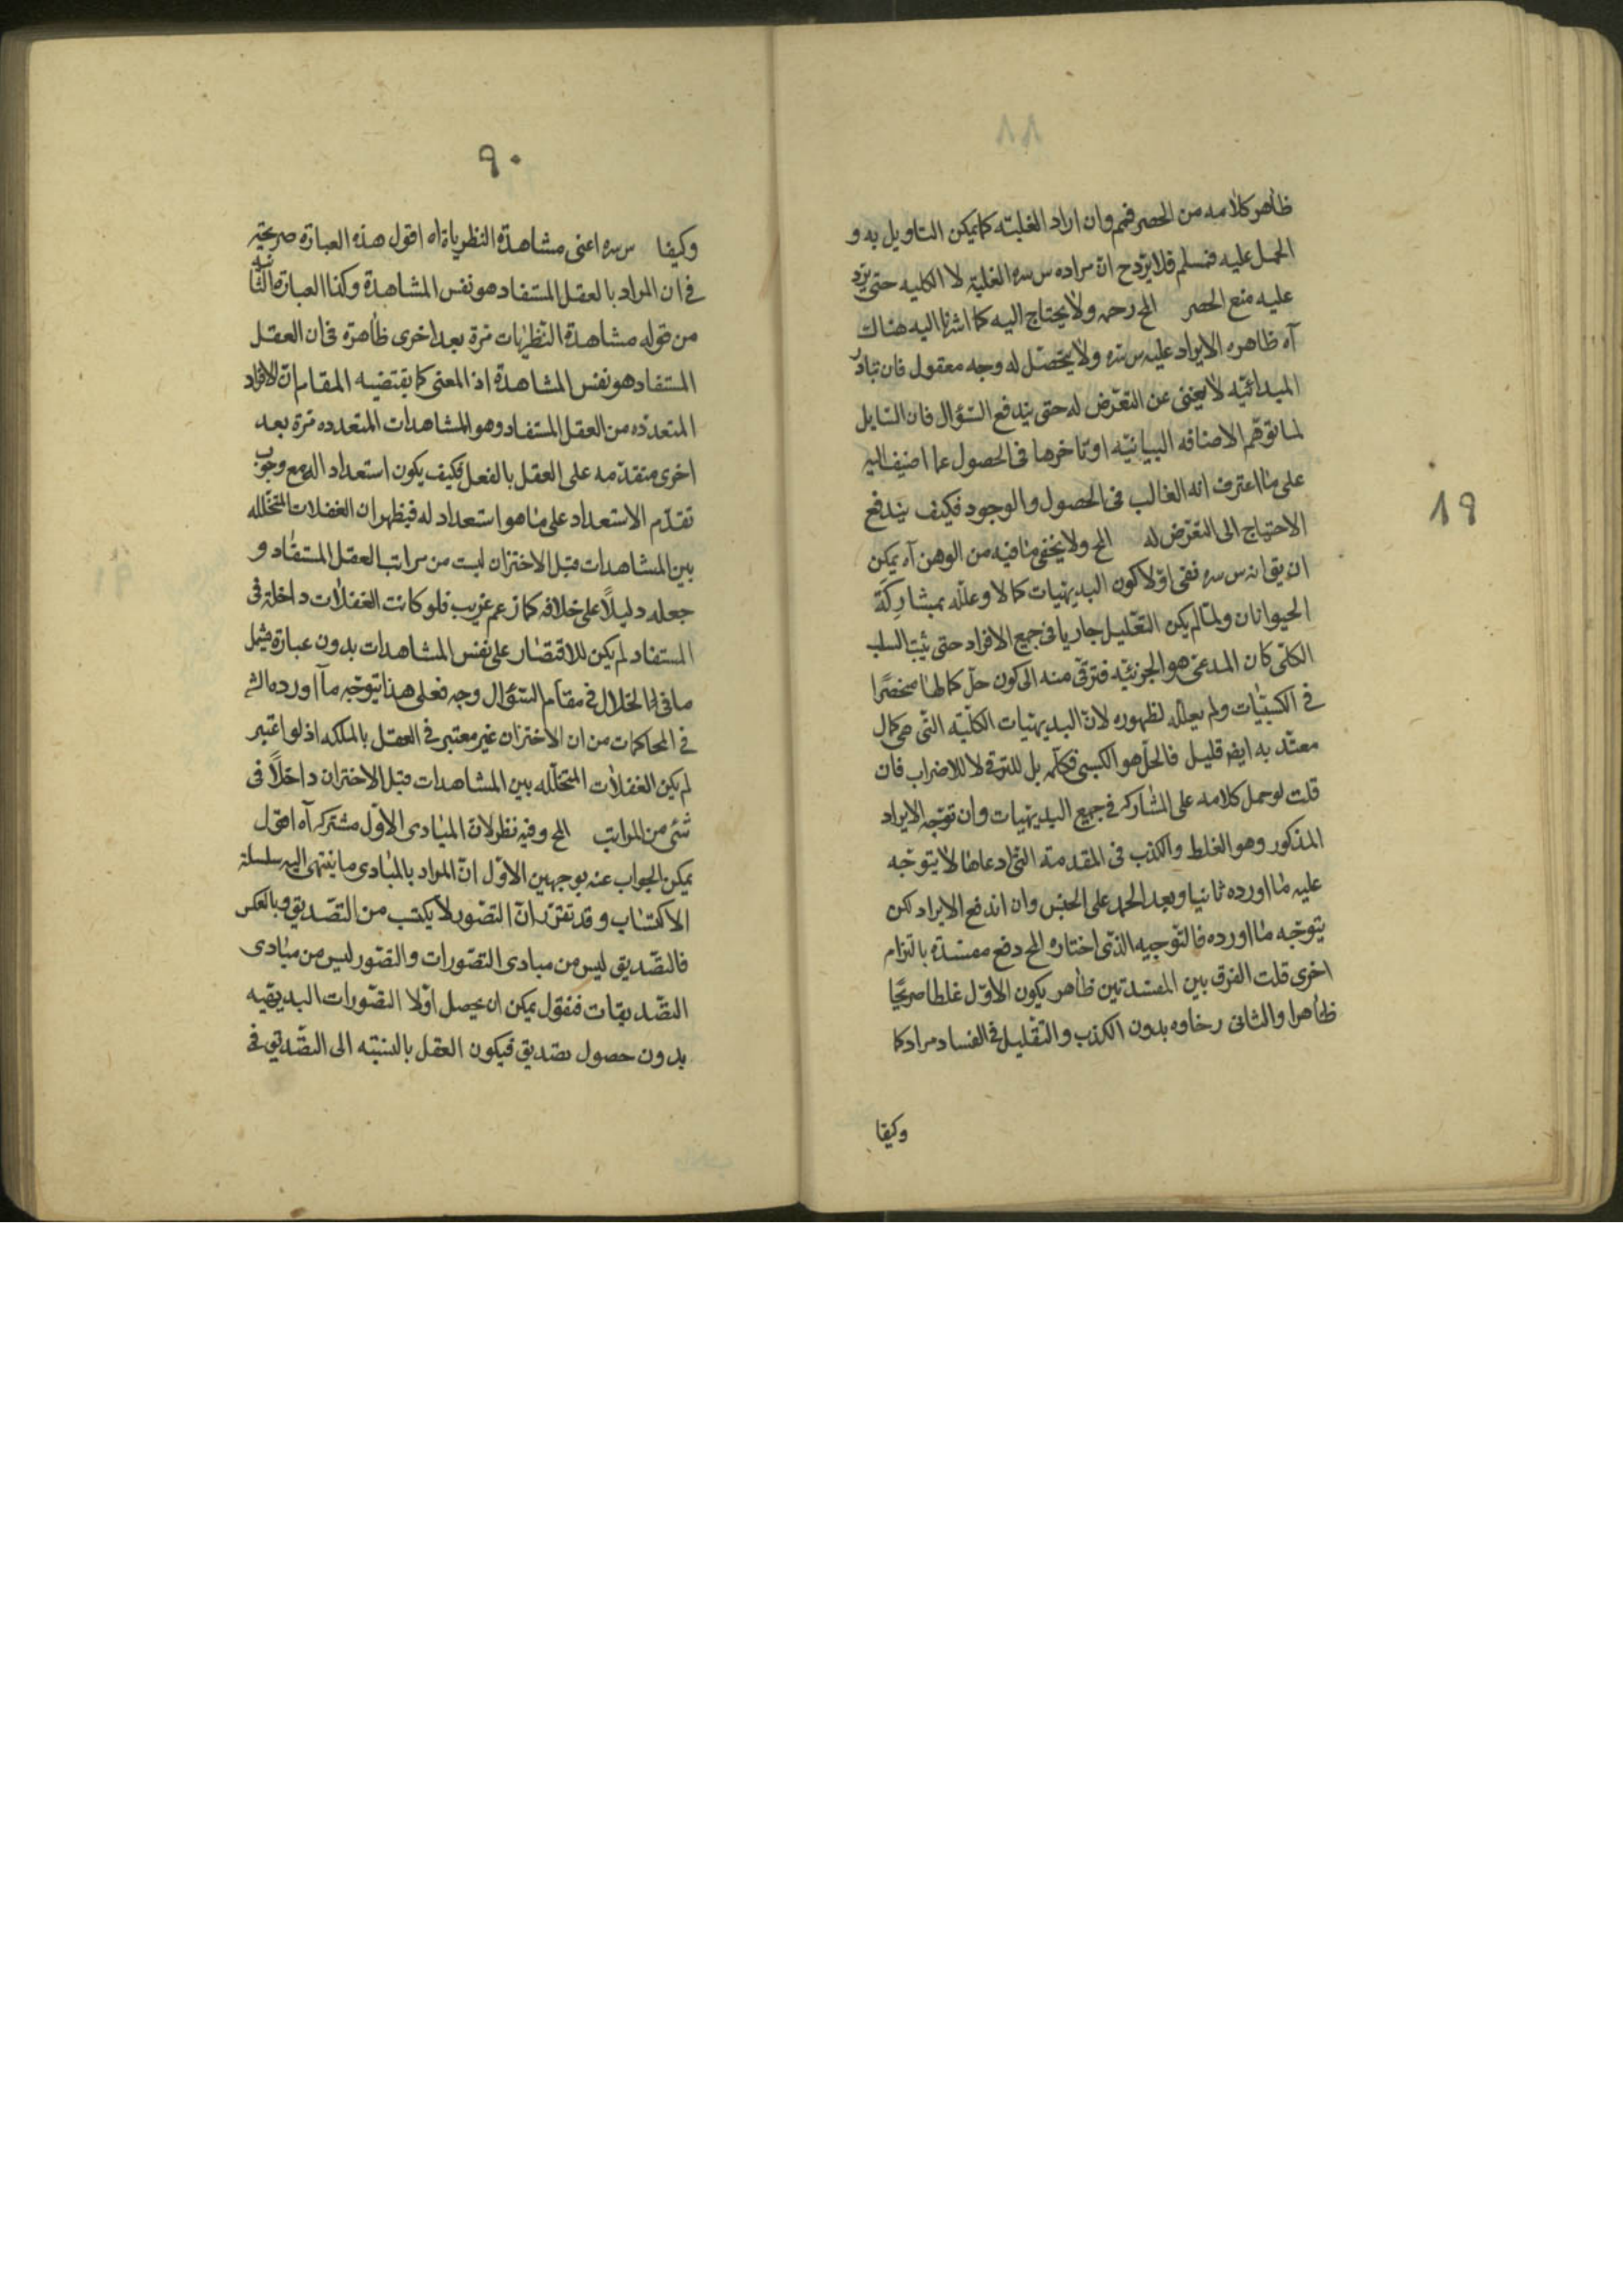 ظاهر كلامه من الحصر فمم وان اراد الغلبته كما يمكن التاويل به و
الحمل عليه فمسلم فلا يرد ح ان مراده س سره الغلبة لا الكليه حتى يرد
عليه منع الحصر المح رحمه ولا يحتاج اليه كما اشرنا اليه هناك
آه ظاهره الايراد عليه س سره ولا يتحصل له وجه معقول فان تبادر
المبدائيه لا يغنى عن التعرض له حتى يندفع السؤال فان السايل
لما توهم الاضافه البيانيه او تاخرها فى الحصول عما اضيف اليه
على ما اعترف انه الغالب فى الحصول والوجود فكيف يندفع
الاحتياج الى التعرض له المح ولا يخفى ما فيه من الوهن آه يمكن
ان يق انه س سره نفى اولا كون البديهيات كمالا وعلله بمشاركة
الحيوانات ولما لم يكن التعليل جاريا فى جميع الافراد حتى يثبت السلب
الكلى كان المدعى هو الجزئيه فترقى منه الى كون جل كمالها منحصرا
فى الكسبيات ولم يعلله لظهوره لان البديهيات الكليه التى هى كمال
معتد به ايض قليل فالجل هو الكسبى فكلمه بل للترقى لا للاضراب فان
قلت لو حمل كلامه على المشاركه فى جميع البديهيات وان توجه الايراد
المذكور وهو الغلط والكذب فى المقدمته التى ادعاها لا يتوجه
عليه ما اورده ثانيا وبعد الحمل على الجنس وان اندفع الايراد لكن
يتوجه ما اورده فالتوجيه الذى اختاره المح دفع مفسدة بالتزام
اخرى قلت الفرق بين المفسدتين ظاهر يكون الاول غلطا صريحا
ظاهرا والثانى رخاوه بدون الكذب والتقليل فى الفساد مراد كما
وكيفا
١٩
٩٠
وكيفا س سره اعنى مشاهدة النظرياة اه اقول هذه العبارة صريحة
فى ان المراد بالعقل المستفاد هو نفس المشاهدة وكذا العبارة الثانيه
من قوله مشاهدة النظريات مرة بعد اخرى ظاهرة فى ان العقل
المستفاد هو نفس المشاهدة اذ المعنى كما يقتضيه المقام ان الافراد
المتعدده من العقل المستفاد وهو المشاهدات المتعدده مرة بعد
اخرى متقدمه على العقل بالفعل فكيف يكون استعداد اله مع وجوب
تقدم الاستعداد على ما هو استعداد له فيظهر ان الغفلات المتخلله
بين المشاهدات قبل الاختزان ليست من مراتب العقل المستفاد و
جعله دليلا على خلافه كما زعم غريب فلو كانت الغفلات داخلة فى
المستفاد لم يكن للاقتصار على نفس المشاهدات بدون عبارة يشمل
ما فى الخلال فى مقام السؤال وجه فعلى هذا يتوجه ما اورده الش
فى المحاكمات من ان الاختزان غير معتبر فى العقل بالملكه اذ لو اعتبر
لم يكن الغفلات المتخلله بين المشاهدات قبل الاختزان داخلا فى
شئ من المراتب المح وفيه نظر لان المبادى الاول مشتركه آه اقول
يمكن الجواب عنه بوجهين الاول ان المراد بالمبادى ما ينتهى اليه سلسلة
الاكتساب وقد تقرر ان التصور لا يكتسب من التصديق وبالعكس
فالتصديق ليس من مبادى التصورات والتصور ليس من مبادى
التصديقات فنقول يمكن ان يحصل اولا التصورات البديهيه
بدون حصول تصديق فيكون العقل بالنسبته الى التصديق فى